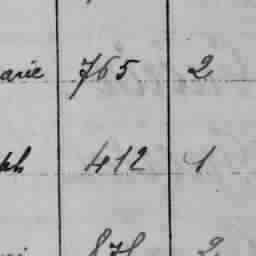 arie 765 2
ph 412 1
878 2